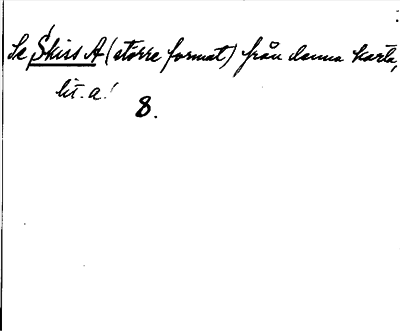 Se Skiss A (större format) från denna karta,
lit. a!
8.